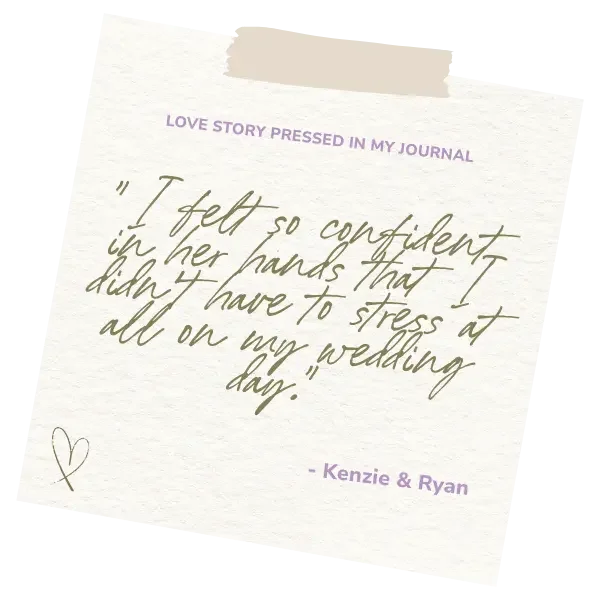 LOVE STORY PRESSED IN MY JOURNAL
"I felt so confident
in her hands that I
didn't have to stress at
all on my wedding
day."
- Kenzie & Ryan